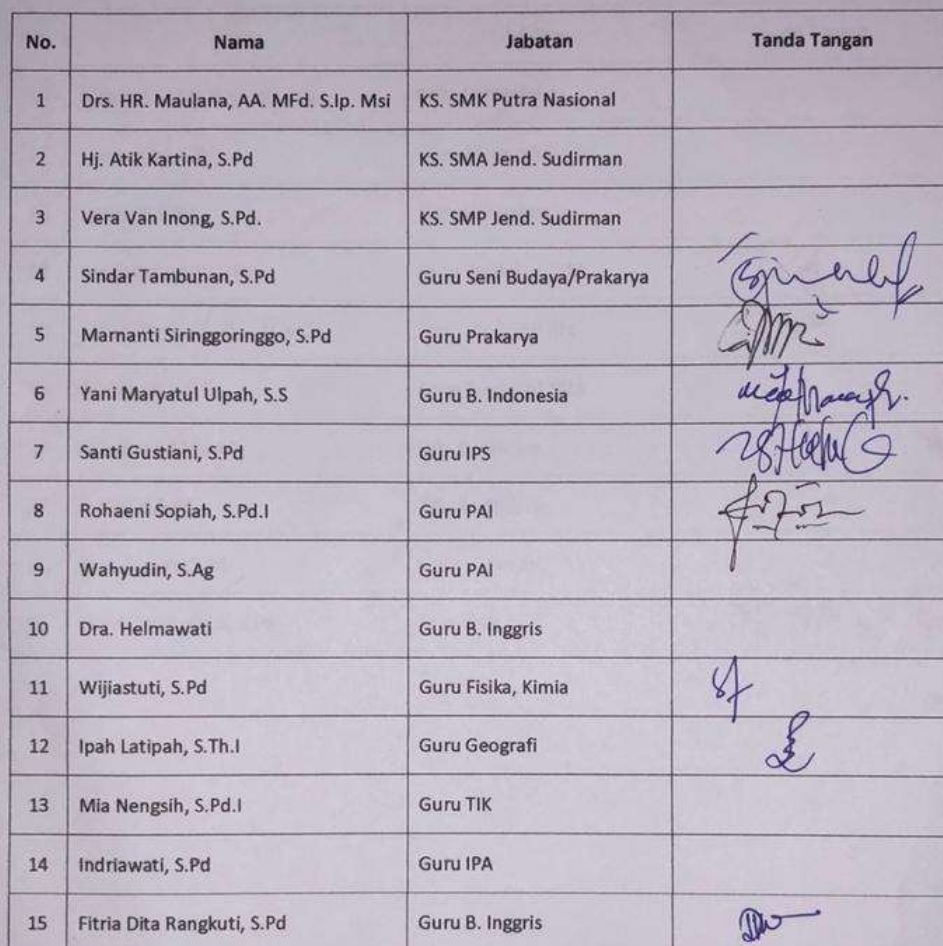 No. Nama Jabatan Tanda Tangan
1 Drs. HR. Maulana, AA. MFd. S.Ip. Msi KS. SMK Putra Nasional
2 Hj. Atik Kartina, S.Pd KS. SMA Jend. Sudirman
3 Vera Van Inong, S.Pd. KS. SMP Jend. Sudirman
4 Sindar Tambunan, S.Pd Guru Seni Budaya/Prakarya
5 Marnanti Siringgoringgo, S.Pd Guru Prakarya
6 Yani Maryatul Ulpah, S.S Guru B. Indonesia
7 Santi Gustiani, S.Pd Guru IPS
8 Rohaeni Sopiah, S.Pd.I Guru PAI
9 Wahyudin, S.Ag Guru PAI
10 Dra. Helmawati Guru B. Inggris
11 Wijiastuti, S.Pd Guru Fisika, Kimia
12 Ipah Latipah, S.Th.I Guru Geografi
13 Mia Nengsih, S.Pd.I Guru TIK
14 Indriawati, S.Pd Guru IPA
15 Fitria Dita Rangkuti, S.Pd Guru B. Inggris